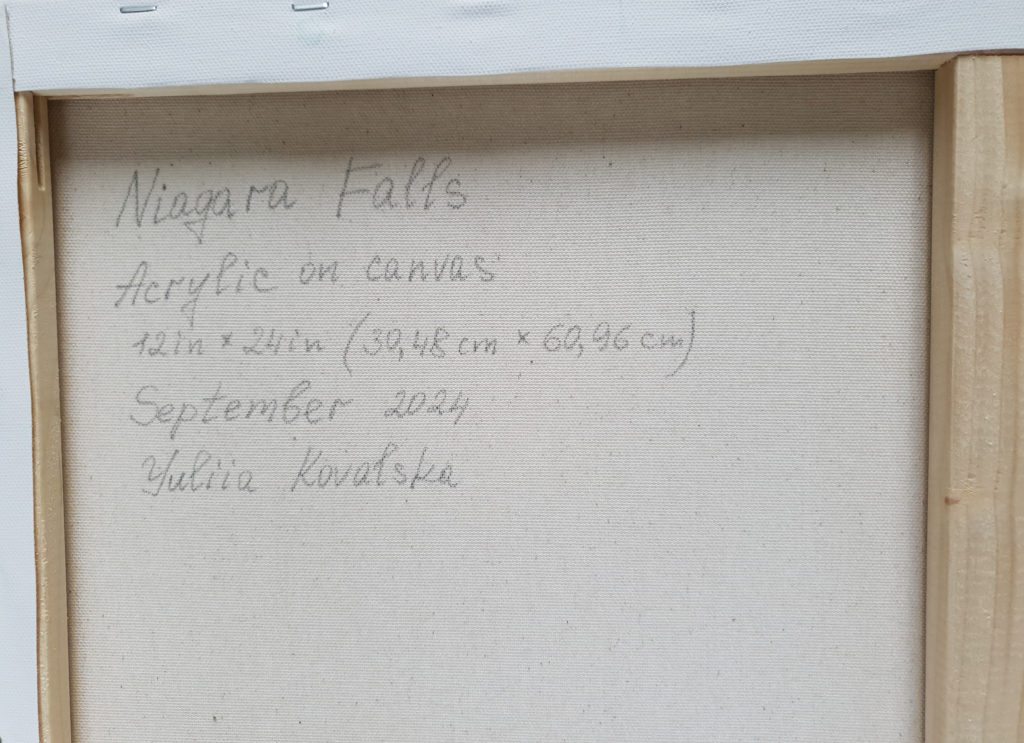 Niagara Falls
Acrylic on canvas
12in × 24in (30,48 cm × 60,96 cm)
September 2024
Yuliia Kovalska